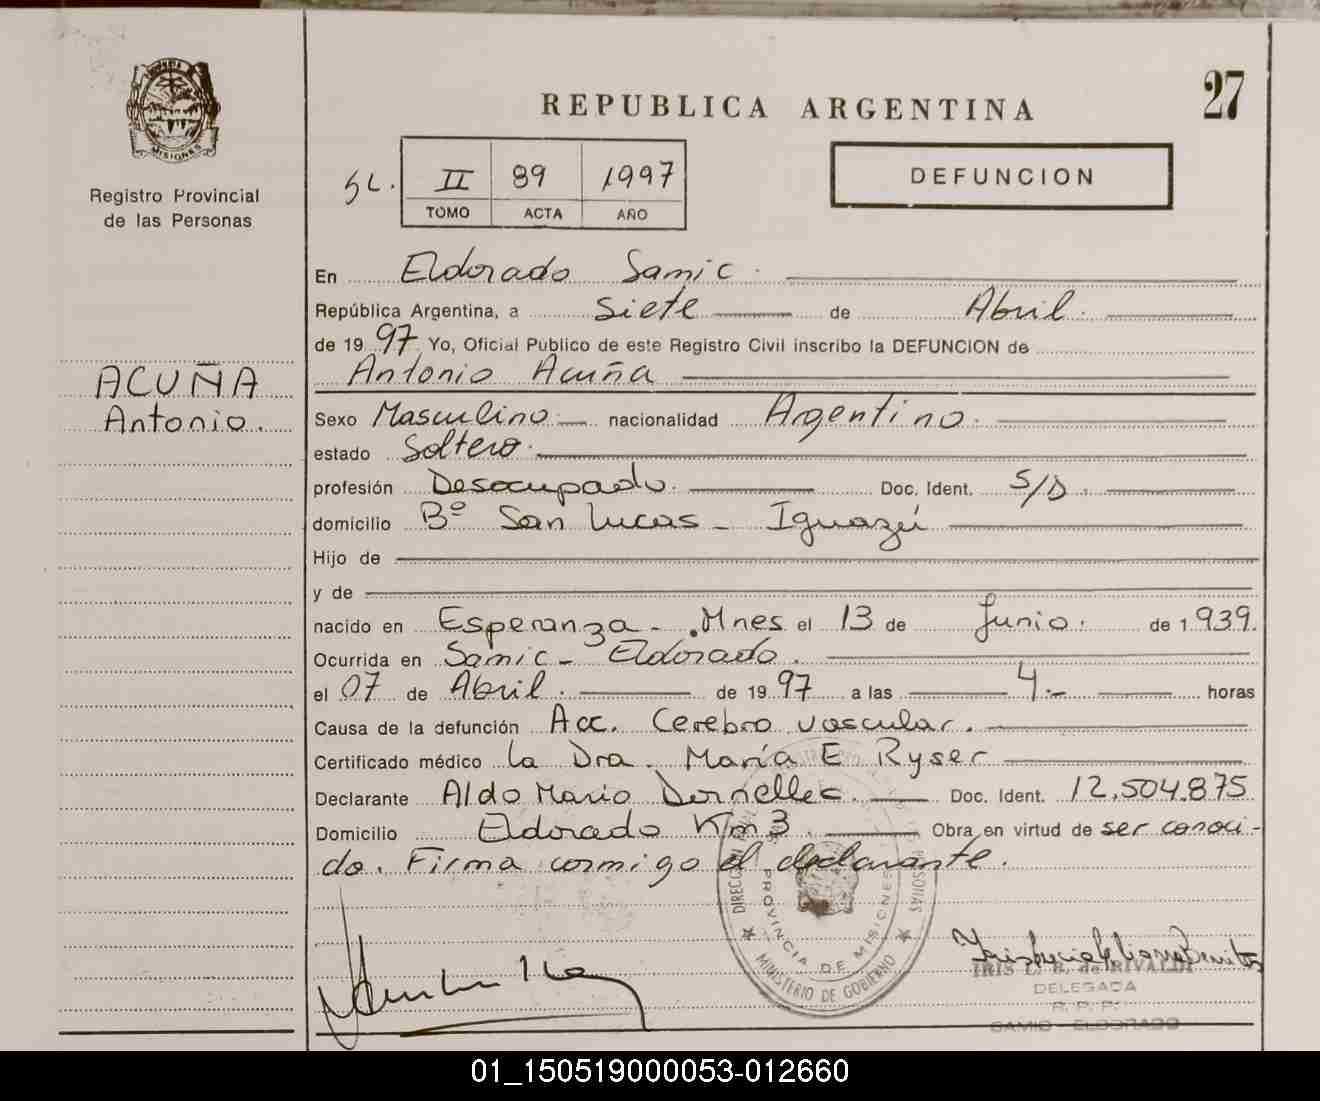 27
REPUBLICA ARGENTINA
MISIONES
Registro Provincial
de las Personas
SL. II 89 1997
TOMO ACTA AÑO
DEFUNCION
En Eldorado Samic.
República Argentina, a Siete de Abril.
de 1997 Yo, Oficial Publico de este Registro Civil inscribo la DEFUNCION de
Antonio Acuña
ACUÑA
Antonio.
Sexo Masculino nacionalidad Argentino.
estado Soltero.
profesión Desocupado. Doc. Ident. S/D.
domicilio Bº San Lucas - Iguazú
Hijo de
y de
nacido en Esperanza - Mnes el 13 de Junio. de 1939.
Ocurrida en Samic - Eldorado.
el 07 de Abril. de 1997 a las 4.- horas
Causa de la defunción Acc. Cerebro vascular.
Certificado médico la Dra. María E Ryser
Declarante Aldo Mario Doc. Ident. 12.504.875
Domicilio Eldorado Km 3. Obra en virtud de ser conoci-
do. Firma conmigo el declarante.
PROVINCIA DE MISIONES
MINISTERIO DE GOBIERNO
IRIS L. B. de RIVALDI
DELEGADA
R. P. P.
SAMIC - ELDORADO
01_150519000053-012660